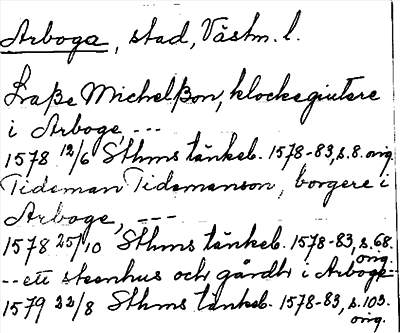 Arboga, stad, Västm. l.
Laße Michelßon, klockegiutere
i Arboge, ---
1578 12/6 Sthms tänkeb. 1578-83, s. 8. orig.
Tideman Tidemanson, borgere i
Arboge, ---
1578 25/10 Sthms tänkeb. 1578-83, s. 68. orig.
-- ett steenhus och gårdh i Arboge--
1579 22/8 Sthms tänkeb. 1578-83, s. 103. orig.